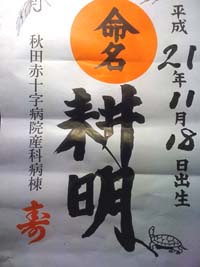 平成21年11月18日出生
命名
耕明
秋田赤十字病院産科病棟
寿